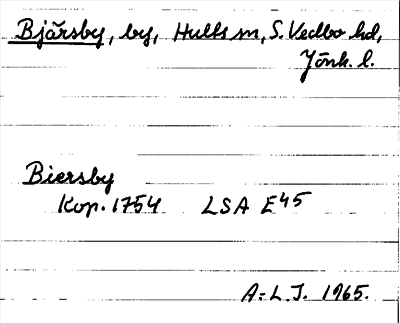 Bjärsby, by, Hults sn, S. Vedbo hd,
Jönk. l.
Biersby
Kop. 1754 LSA E45
A-L.J. 1965.